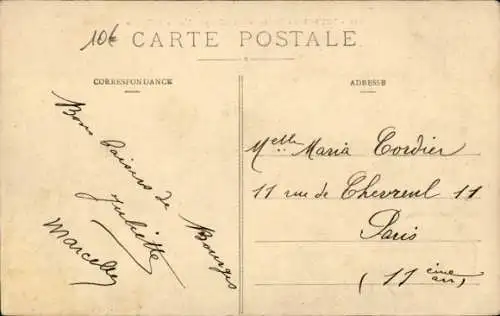 10€
CARTE POSTALE
CORRESPONDANCE
ADRESSE
Bons baisers de Bourges
Juliette
Marcelle
Melle Maria Cordier
11 rue de Chevreul 11
Paris
(11ème arr)